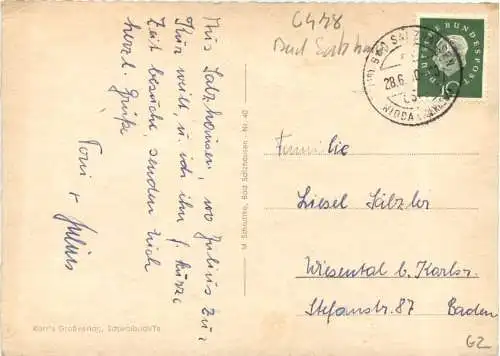 Aus Salzhausen, wo Julius zur
Kur weilt, u. ich ihn f. kurze
Zeit besuche senden Euch
herzl. Grüße
Toni + Julius
M. Schluttke, Bad Salzhausen - Nr. 40
Karl's Großverlag,
C478
Bad Salzhau
BAD SALZHAUSEN
28.6.
NIDDA
DEUTSCHE BUNDESPOST
Familie
Liesel Sälzler
Wiesental b. Karlsr.
Stefanstr. 87 Baden
GZ